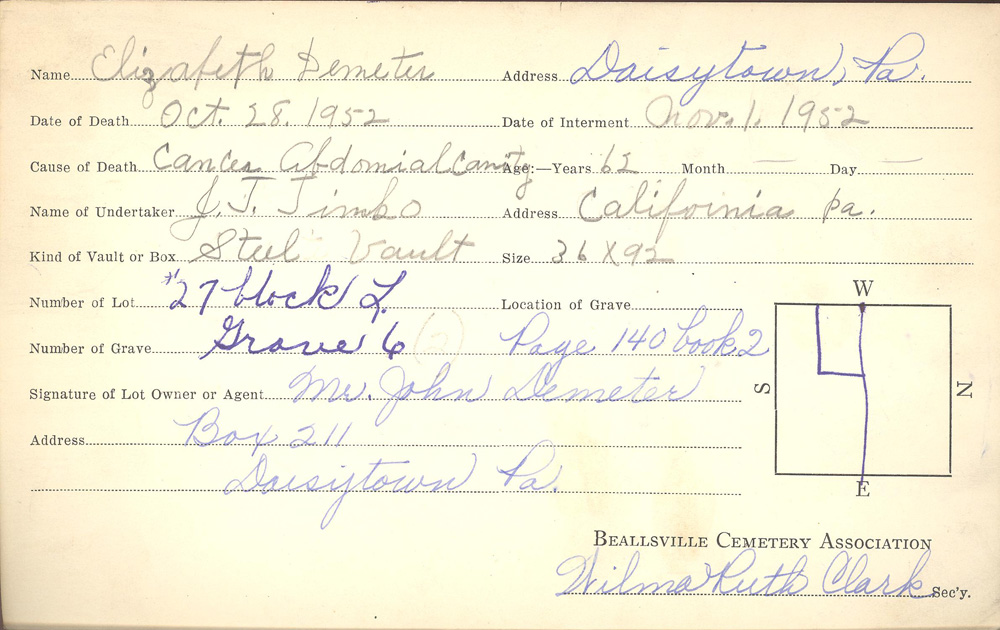 Name Elizabeth Demeter Address Daisytown, Pa.
Date of Death Oct. 28. 1952 Date of Interment Nov. 1. 1952
Cause of Death Cancer Abdomial Cavity Age:—Years 62 Month — Day —
Name of Undertaker J. T. Timko Address California pa.
Kind of Vault or Box Steel Vault Size 36 X 92
Number of Lot #27 block L. Location of Grave
Number of Grave Grave 6 (2) Page 140 book 2
Signature of Lot Owner or Agent Mr. John Demeter
Address Box 211
Daisytown Pa.
W
S
N
E
Beallsville Cemetery Association
Wilma Ruth Clark Sec'y.